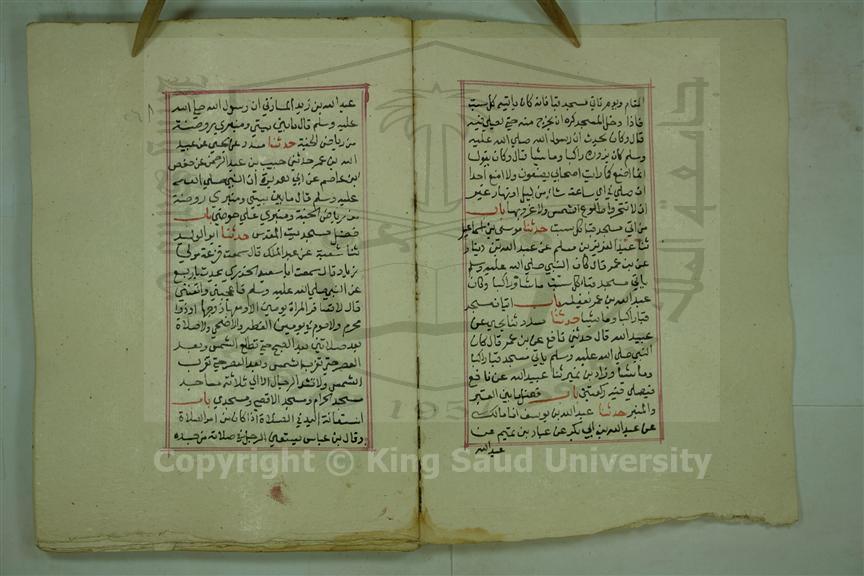 المقام ويوم ياتي مسجد قبا فانه كان ياتيه كل سبت
فاذا دخل المسجد كره ان يخرج منه حتي يصلي فيه
قال وكان يحدث ان رسول الله صلي الله عليه
وسلم كان يزوره راكبا وماشيا قال وكان يقول
انما اصنع كما رايت اصحابي يصنعون ولا امنع أحدا
ان صلي في اي ساعة شاء من ليل او نهار غير
ان لا تتحروا طلوع الشمس ولا غروبها باب
من اتي مسجد قبا كل سبت حدثنا موسي بن اسماعيل
ثنا عبد العزيز بن مسلم عن عبد الله بن دينار
عن بن عمر قال كان النبي صلي الله عليه وسلم
ياتي مسجد قبا كل سبت ماشيا وراكبا وكان
عبد الله بن عمر يفعله باب اتيان مسجد
قبا راكبا وماشيا حدثنا مسدد ثنا يحيي عن
عبيد الله قال حدثني نافع عن بن عمر قال كان
النبي صلي الله عليه وسلم ياتي مسجد قبا راكبا
وماشيا وزاد بن نمير ثنا عبيد الله عن نافع
فيصلي فيه ركعتين باب فضل ما بين القبر
والمنبر حدثنا عبد الله بن يوسف انا مالك
عن عبد الله بن أبي بكر عن عباد بن تميم عن
عبد الله
عبد الله بن زيد المازني ان رسول الله صلي الله
عليه وسلم قال ما بين بيتي ومنبري روضة
من رياض الجنة حدثنا مسدد عن يحيي عن عبيد
الله بن عمر حدثني حبيب بن عبد الرحمن عن حفص
ابن عاصم عن ابي هريرة أن النبي صلي الله
عليه وسلم قال ما بين بيتي ومنبري روضة
من رياض الجنة ومنبري علي حوضي باب
فضل مسجد بيت المقدس حدثنا ابو الوليد
ثنا شعبة عن عبد الملك قال سمعت قزعة مولي
زياد قال سمعت ابا سعيد الخدري يحدث باربع
عن النبي صلي الله عليه وسلم فاعجبنني وانقنني
قال لا تسافر المراة يومين الا ومعها زوجها او ذوا
محرم ولا صوم في يومين الفطر والاضحي ولا صلاة
بعد صلاتين بعد الصبح حتي تطلع الشمس وبعد
العصر حتي تغرب
الشمس ولا تشد الرحال الا الي ثلاثة مساجد
مسجد الحرام ومسجد الاقصي ومسجدي باب
استعانة اليد في الصلاة اذا كان من امر الصلاة
وقال بن عباس يستعين الرجل في صلاته من جسده
Copyright © King Saud University